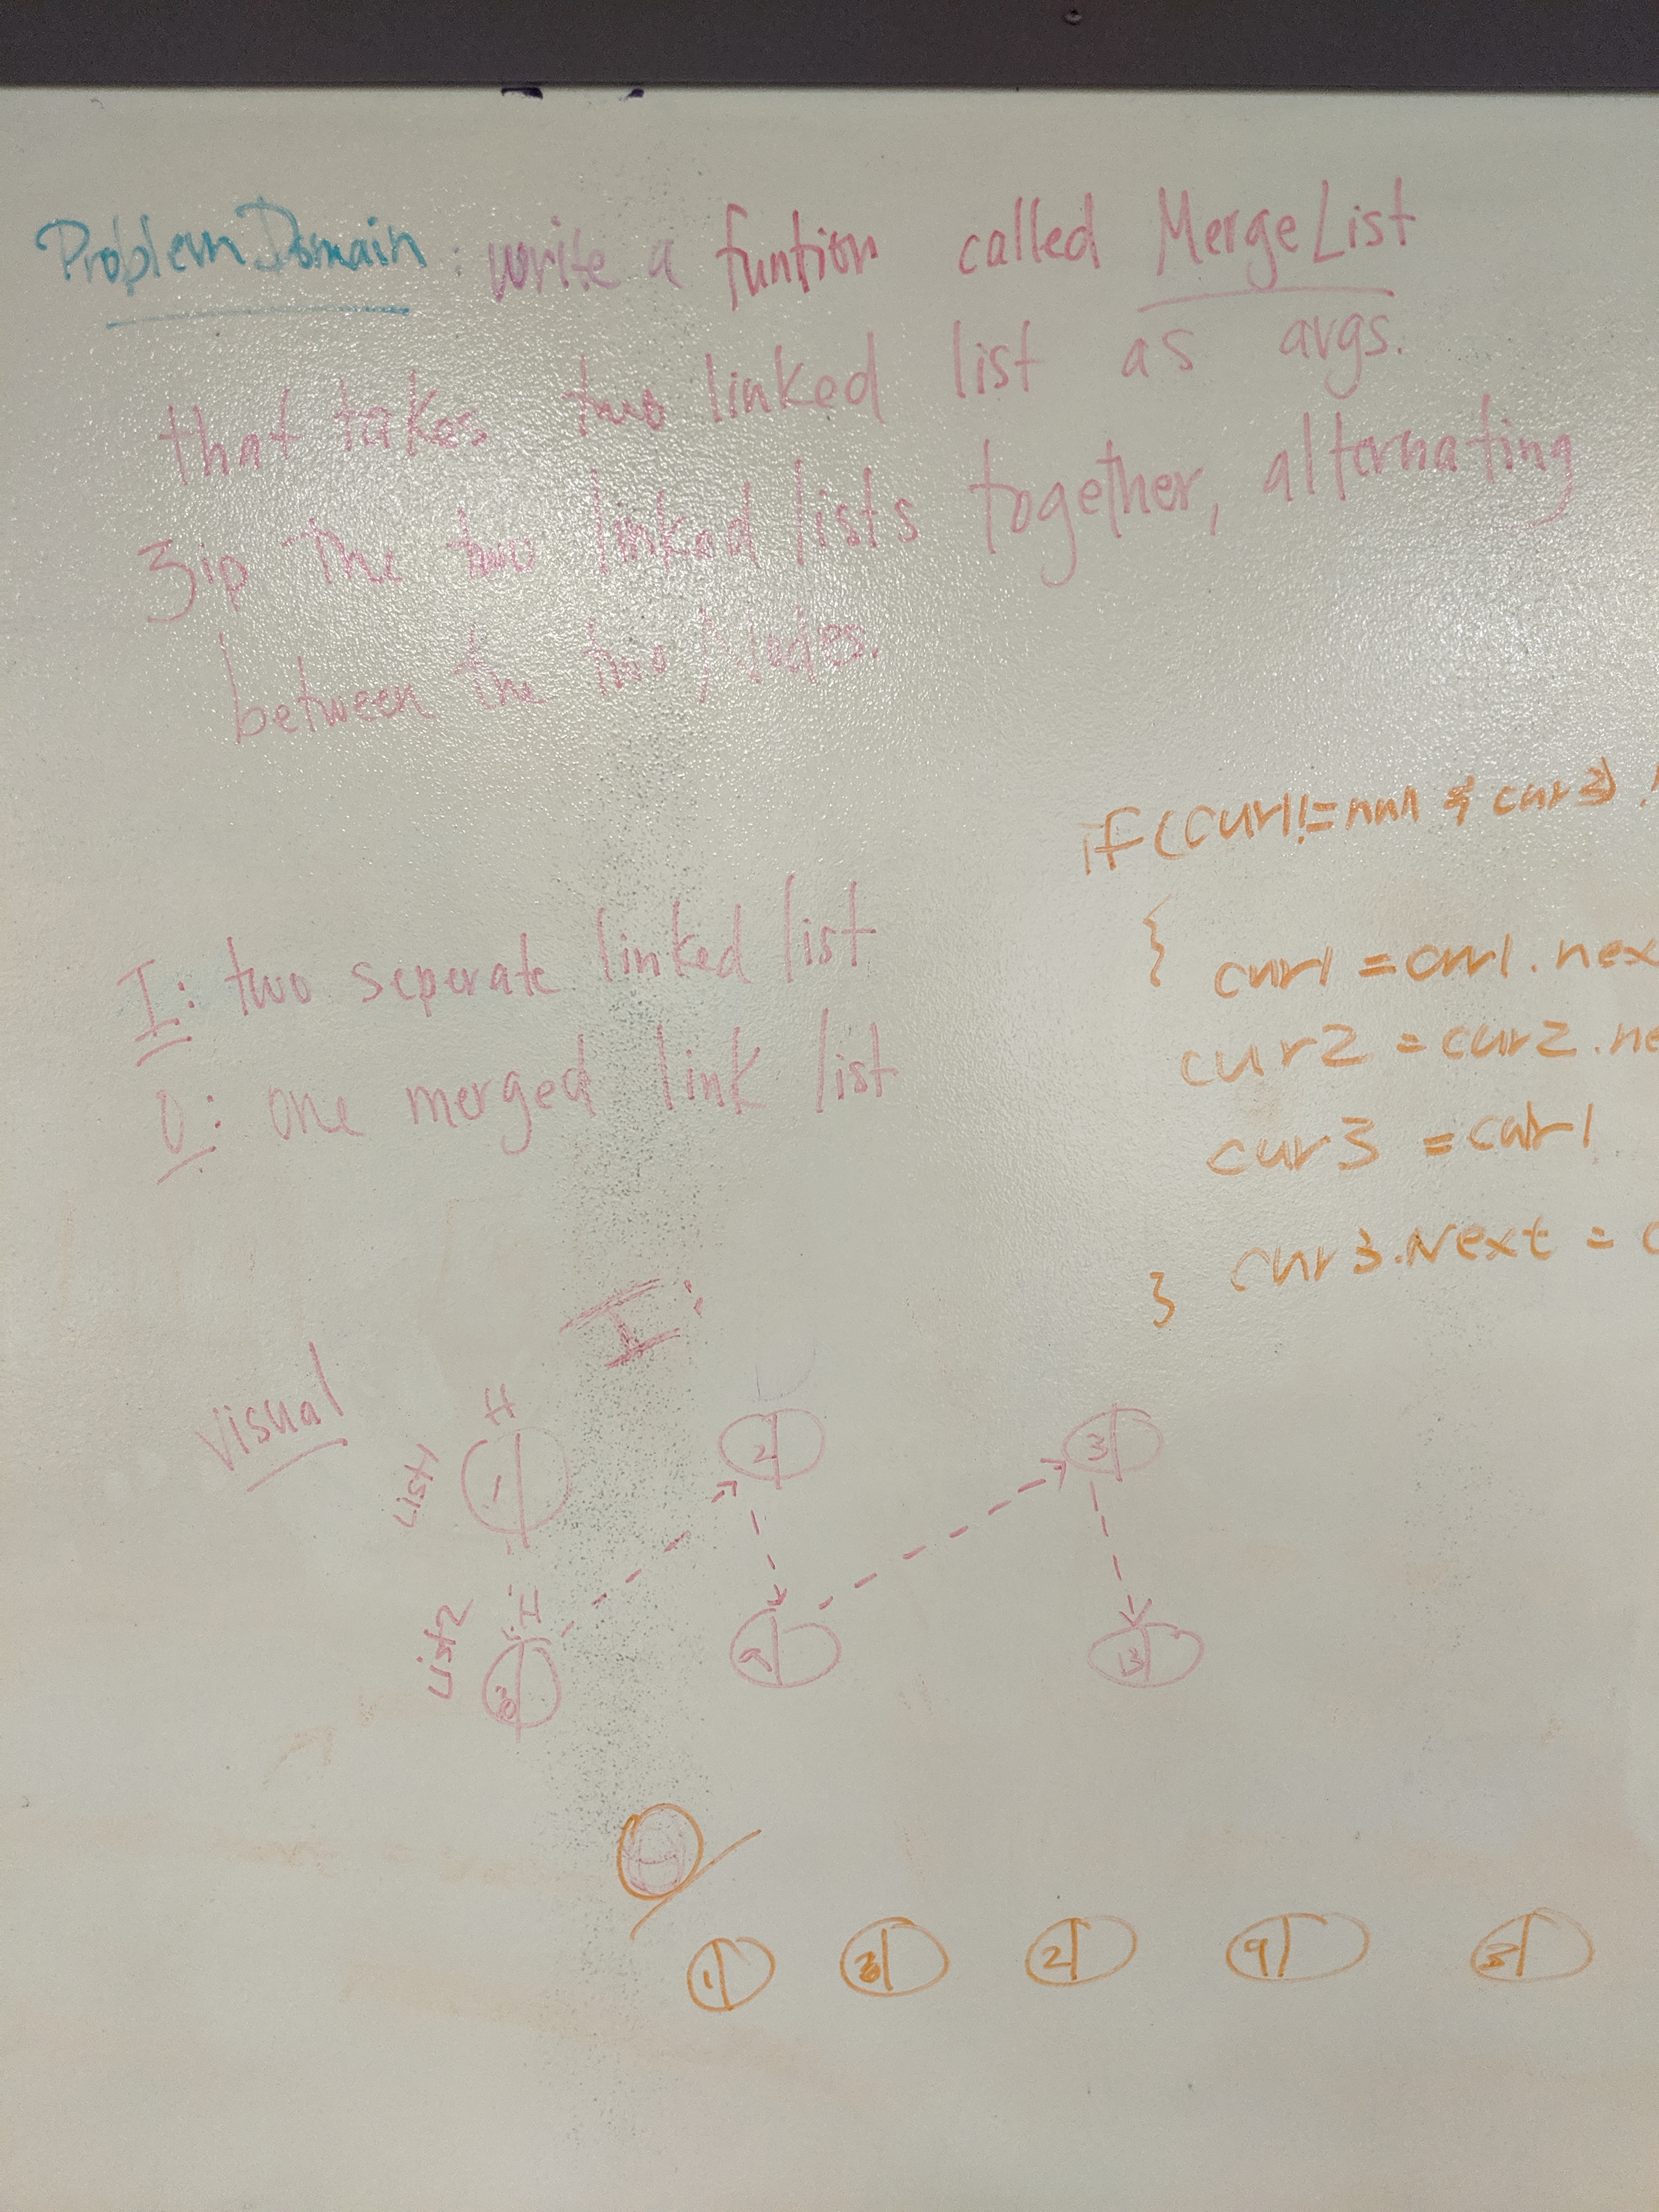 Problem Domain : write a funtion called MergeList
that takes two linked list as args.
Zip the two linked lists together, alternating
between the two Nodes.
I: two seperate linked list
O: one merged link list
if (cur1!=null & cur3) !
{
cur1 = cur1.nex
cur2 = cur2.ne
cur3 = cur1
cur3.Next = c
}
Visual
I:
List1
H
1 2 3
List2
H
9 13
1 2 9